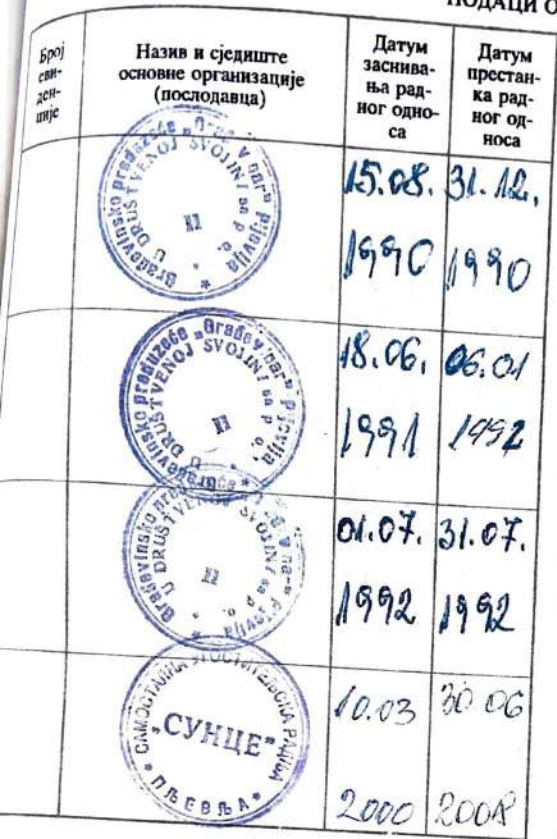 ПОДАЦИ О
Број
еви-
ден-
ције
Назив и сједиште
основне организације
(послодавца)
Датум
заснива-
ња рад-
ног одно-
са
Датум
престан-
ка рад-
ног од-
носа
Građevinsko preduzeće „Građevinar" Pljevlja
U DRUŠTVENOJ SVOJINI sa p. o.
15.08.
1990
31.12.
1990
Građevinsko preduzeće „Građevinar" Pljevlja
U DRUŠTVENOJ SVOJINI sa p. o.
18.06.
1991
06.01
1992
Građevinsko preduzeće „Građevinar" Pljevlja
U DRUŠTVENOJ SVOJINI sa p. o.
01.07.
1992
31.07.
1992
САМОСТАЛНА УГОСТИТЕЉСКА РАДЊА
„СУНЦЕ"
ПЉЕВЉА
10.03
2000
30.06
2008